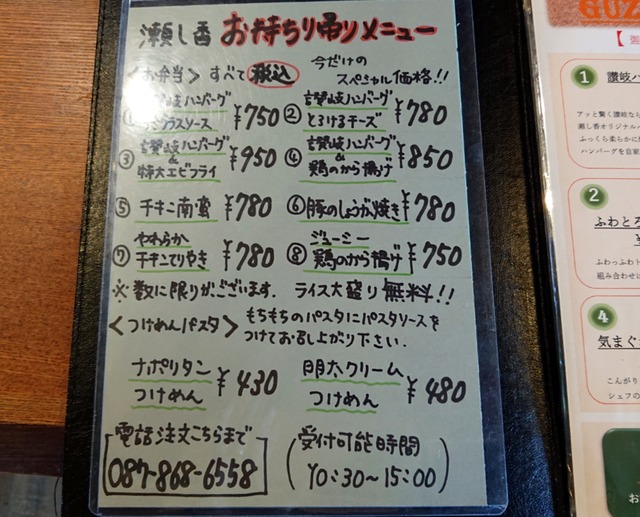 瀬し香 お持ちり帰りメニュー
<お弁当> すべて 税込 今だけの
スペシャル価格!!
讃岐ハンバーグ
デミグラスソース ¥750
② 讃岐ハンバーグ
とろけるチーズ ¥780
③ 讃岐ハンバーグ
&
特大エビフライ ¥950
④ 讃岐ハンバーグ
&
鶏のから揚げ ¥850
⑤ チキン南蛮 ¥780
⑥ 豚のしょうが焼き ¥780
⑦ やわらか
チキンてりやき ¥780
⑧ ジューシー
鶏のから揚げ ¥750
※数に限りがございます. ライス大盛り 無料!!
<つけめんパスタ> もちもちのパスタにパスタソースを
つけてお召し上がり下さい.
ナポリタン
つけめん ¥430
明太クリーム
つけめん ¥480
電話注文こちらまで
087-868-6558
(受付可能時間
10:30~15:00)
GUZ
【 御
1
讃岐ハ
アッと驚く讃岐なら
瀬し香オリジナル
ふっくら柔らかに
ハンバーグを自家
2
ふわとろ
ふわっふわト
組み合わせは
4
気まぐ
こんがり
シェフの
お